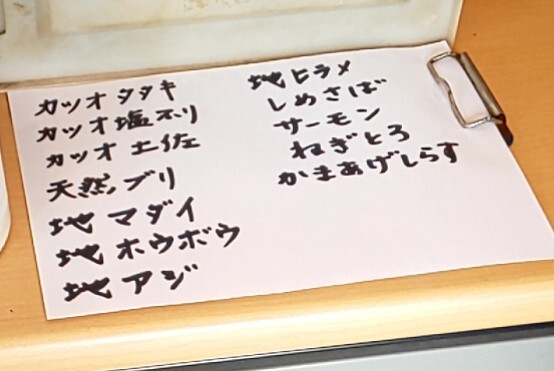 カツオタタキ
カツオ塩タタキ
カツオ土佐
天然ブリ
地マダイ
地ホウボウ
地アジ
地ヒラメ
しめさば
サーモン
ねぎとろ
かまあげしらす